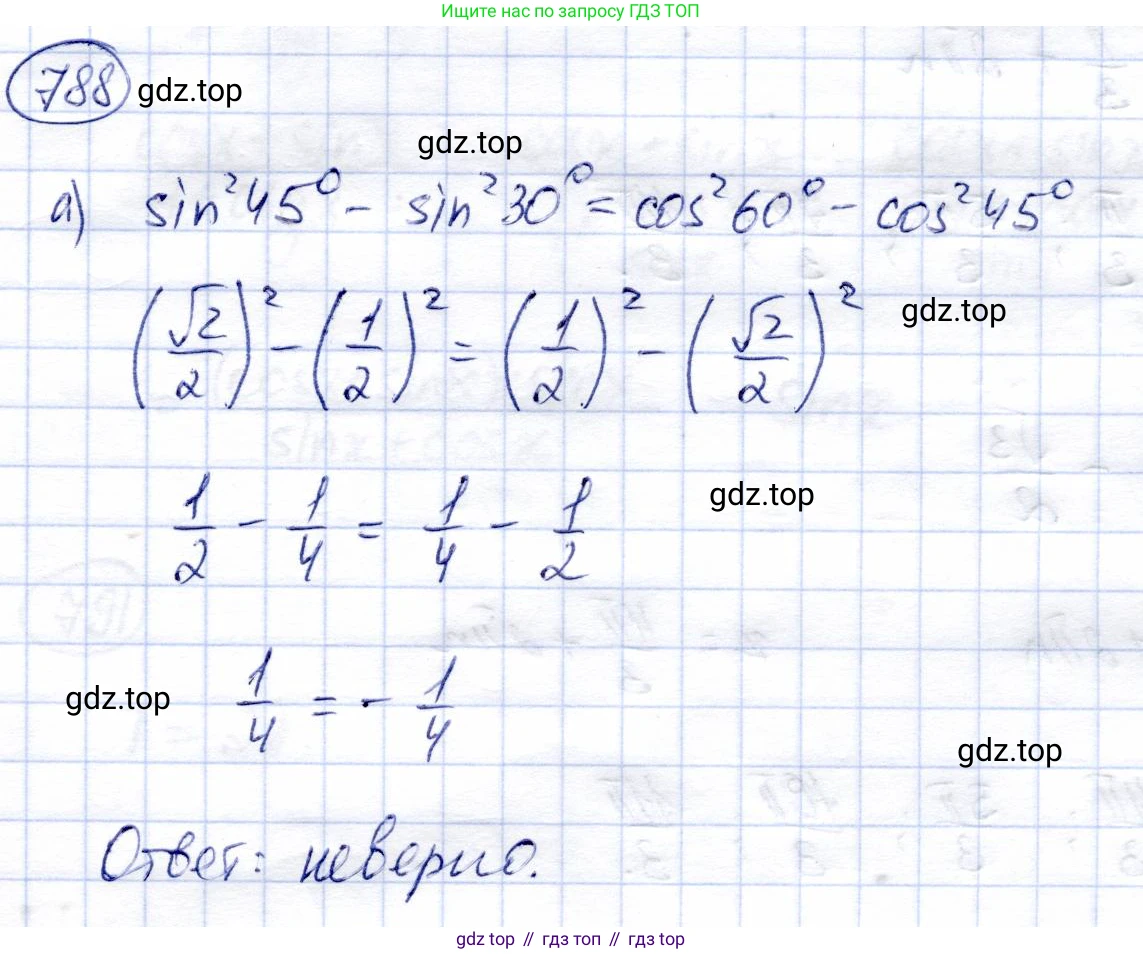 Ищите нас по запросу ГДЗ ТОП
788 gdz.top
gdz.top
а) sin²45° - sin²30° = cos²60° - cos²45°
(√2/2)² - (1/2)² = (1/2)² - (√2/2)² gdz.top
1/2 - 1/4 = 1/4 - 1/2 gdz.top
gdz.top 1/4 = - 1/4
gdz.top
Ответ: неверно.
gdz.top // гдз топ // gdz.top